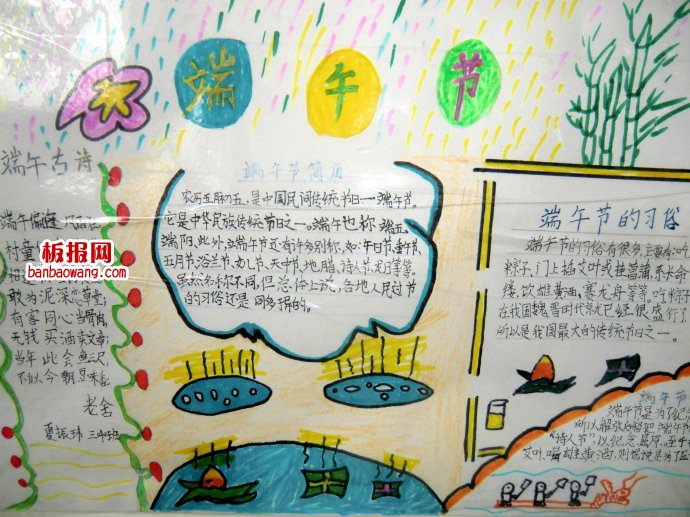 端午节
端午古诗
端午偏逢风雨
村童
敢为泥深恋草堂;
有客同心当骨肉,
无钱买酒卖文章;
当年此会鱼三尺,
不似今朝豆味香。
老舍
夏振玮 三4班
板报网
banbaowang.com
端午节简历
农历五月初五,是中国民间传统节日——端午节。
它是中华民族传统节日之一。端午也称端五、
端阳。此外,端午节还有许多别称,如:午日节、重午节、
五月节、浴兰节、女儿节、天中节、地腊、诗人节、龙日等等。
虽然名称不同,但总体上说,各地人民过节
的习俗还是同多异的。
端午节的习俗
端午节的习俗有很多,主要有:吃
粽子、门上插艾叶或挂菖蒲、系长命
缕、饮雄黄酒、赛龙舟等等。吃粽子
在我国魏晋时代就已经很盛行了
所以是我国最大的传统节日之一。
端午节
端午节是为了纪
所以解放后把端午节
“诗人节”以纪念屈原。至于
艾叶、喝雄黄酒,则据说是为了压